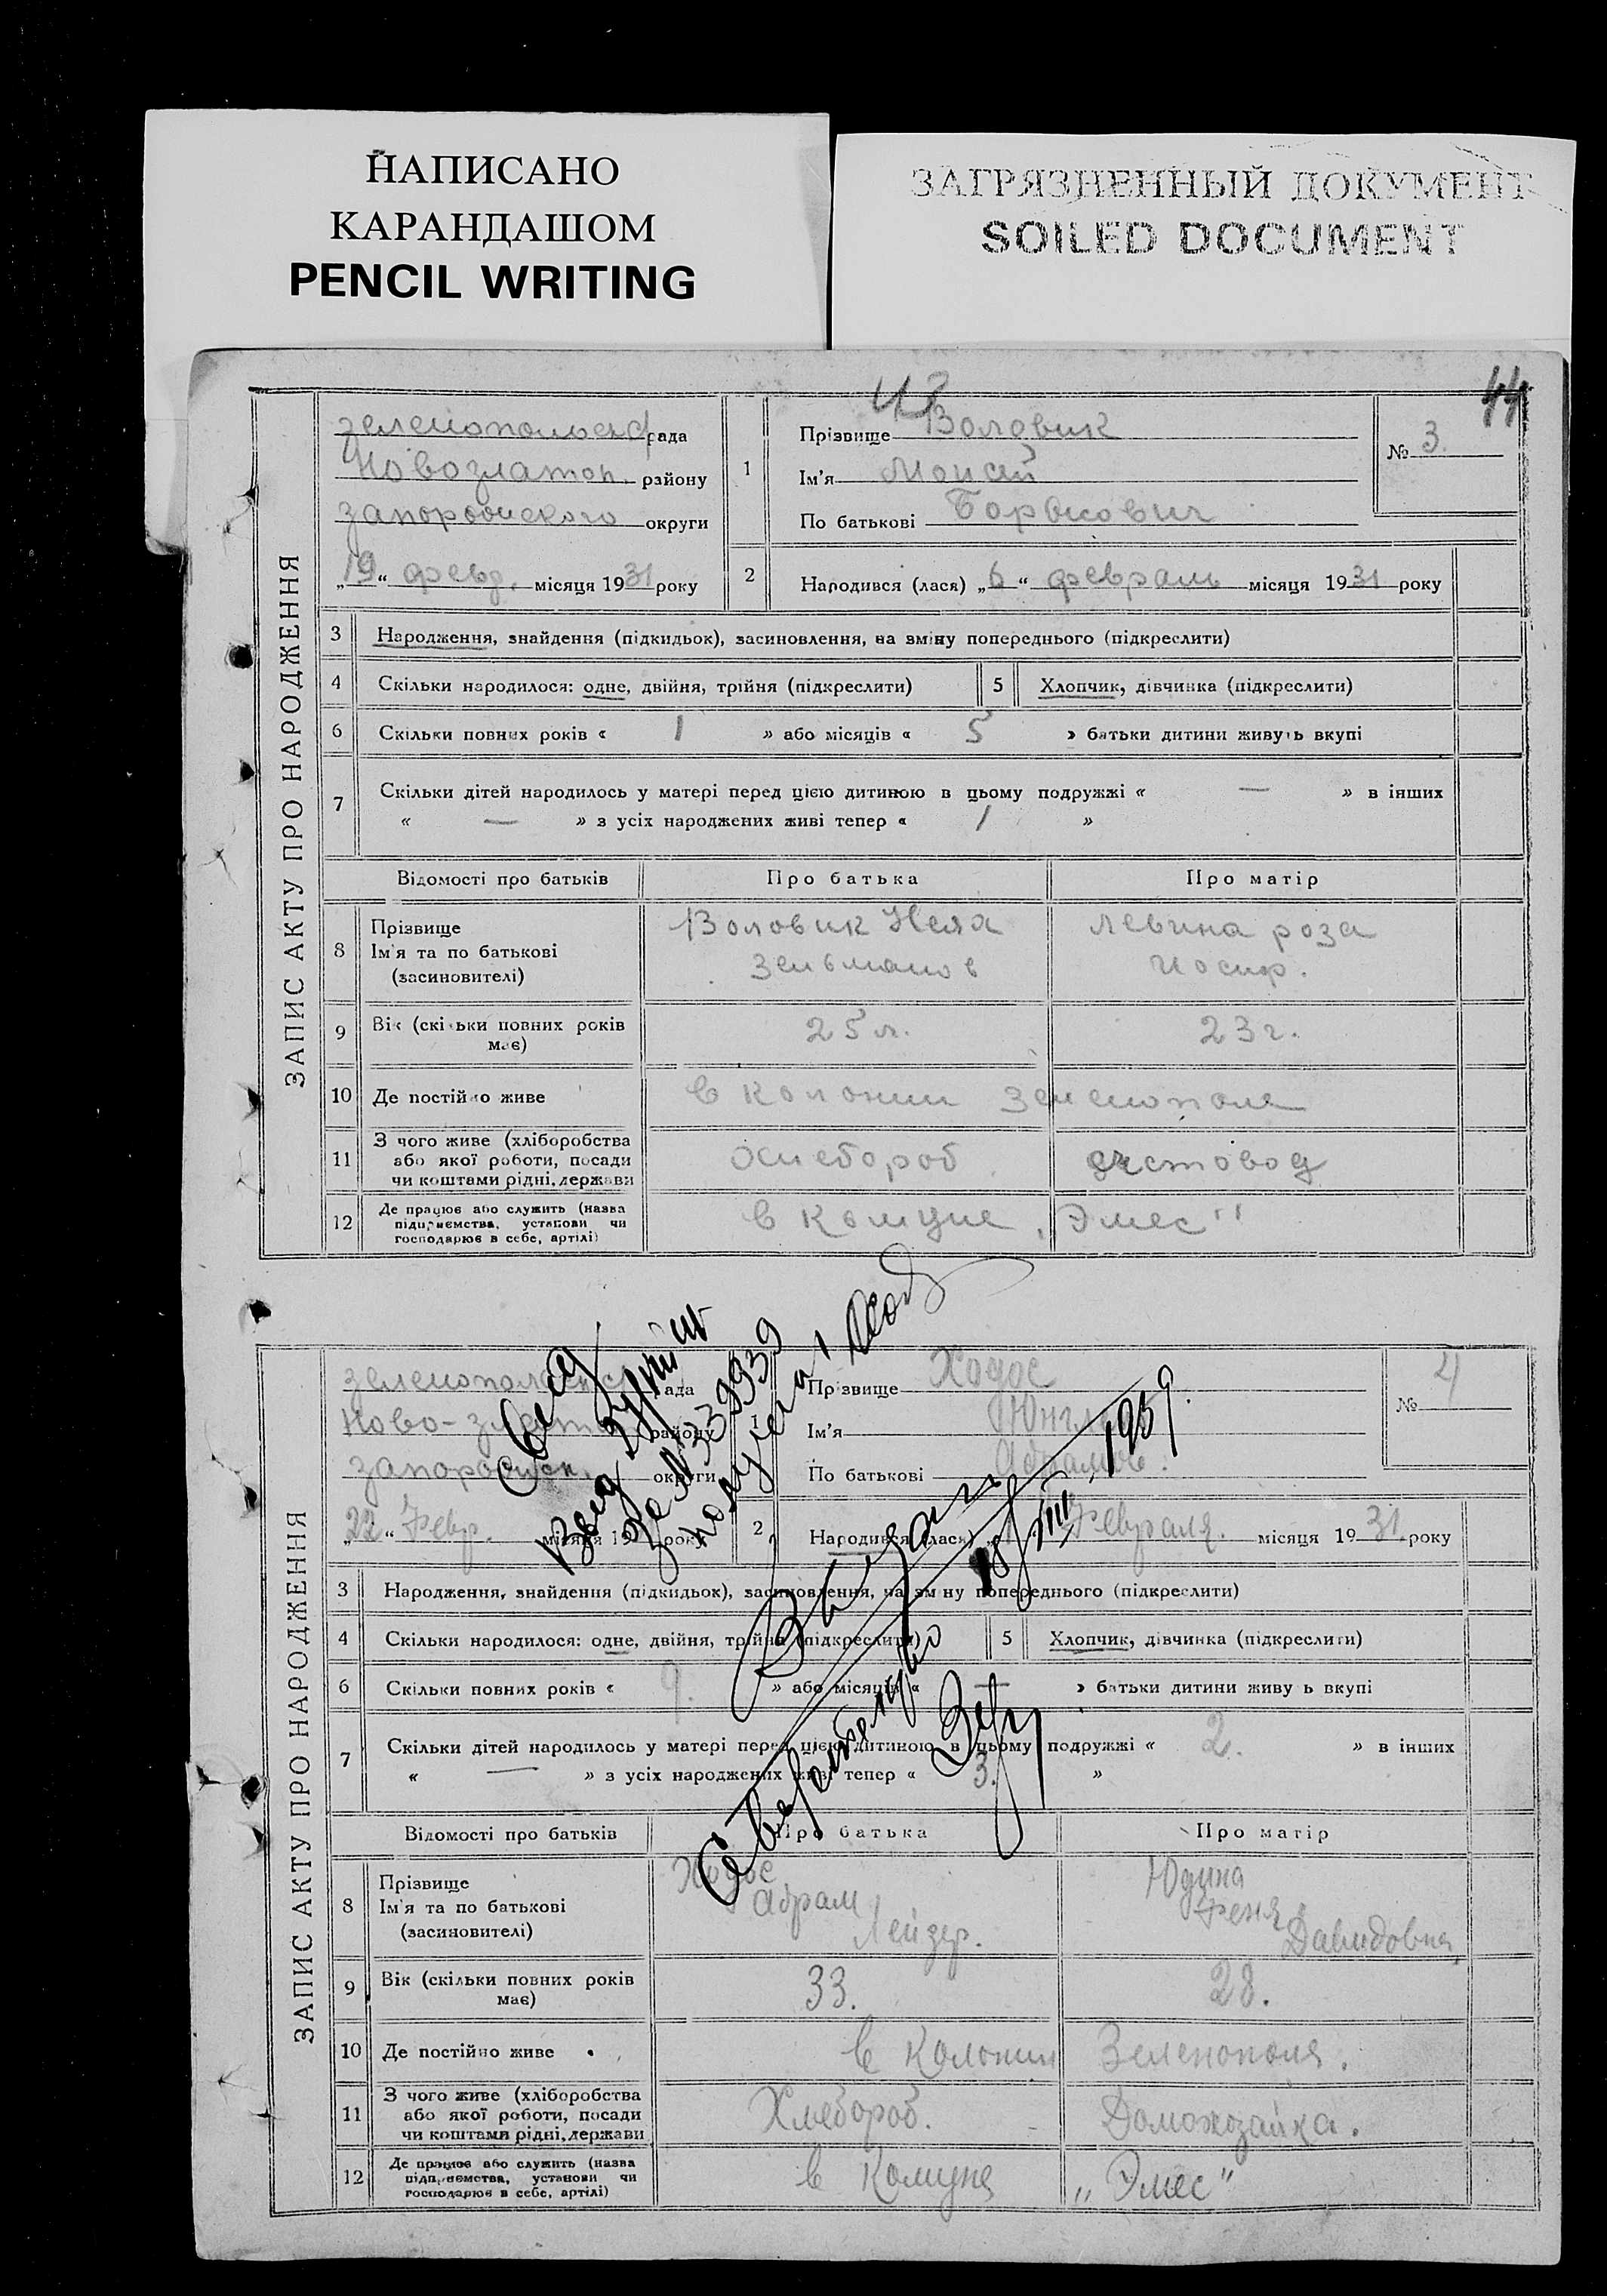 НАПИСАНО
КАРАНДАШОМ
PENCIL WRITING
ЗАГРЯЗНЕННЫЙ ДОКУМЕНТ
SOILED DOCUMENT
44
ЗАПИС АКТУ ПРО НАРОДЖЕННЯ
рада
Новозлатоп. району
округи
„19“ февр. місяця 1931 року
1
Прізвище Воловик
Ім'я
По батькові Борисович
№ 3.
2
Народився (лася) „6“ февраль місяця 1931 року
3 Народження, знайдення (підкидьок), засиновлення, на зміну попереднього (підкреслити)
4 Скільки народилося: одне, двійня, трійня (підкреслити)
5 Хлопчик, дівчинка (підкреслити)
6 Скільки повних років « 1 » або місяців « 5 » батьки дитини живуть вкупі
7 Скільки дітей народилось у матері перед цією дитиною в цьому подружжі « — » в інших
« — » з усіх народжених живі тепер « 1 »
Відомості про батьків Про батька Про матір
8 Прізвище
Ім'я та по батькові
(засиновителі)
Воловик
Зельманов
Левина роза
Иосиф.
9 Вік (скільки повних років
має)
25 л. 23 г.
10 Де постійно живе в колонии Зеленополя
11 З чого живе (хліборобства
або якої роботи, посади
чи коштами рідні, держави
12 Де працює або служить (назва
підприємства, установи чи
господарює в себе, артілі)
в комуне „Эмес"
ЗАПИС АКТУ ПРО НАРОДЖЕННЯ
рада
району
округи
„22“ Февр. місяця 19 року
1
Прізвище Ходос
Ім'я
По батькові Абрамов.
№ 4
2
Народився (лася) Февраля. місяця 1931 року
3 Народження, знайдення (підкидьок), засиновлення, на зміну попереднього (підкреслити)
4 Скільки народилося: одне, двійня, трійня (підкреслити)
5 Хлопчик, дівчинка (підкреслити)
6 Скільки повних років « 9. » або місяців « — » батьки дитини живуть вкупі
7 Скільки дітей народилось у матері перед цією дитиною в цьому подружжі « 2. » в інших
« — » з усіх народжених живі тепер « 3. »
Відомості про батьків Про батька Про матір
8 Прізвище
Ім'я та по батькові
(засиновителі)
Ходос
Абрам
Лейзер.
Юдина
Феня
Давидовна
9 Вік (скільки повних років
має)
33. 28.
10 Де постійно живе в Колонии Зеленополя.
11 З чого живе (хліборобства
або якої роботи, посади
чи коштами рідні, держави
Хлебороб. Домохозайка.
12 Де працює або служить (назва
підприємства, установи чи
господарює в себе, артілі)
в Комуне „Эмес"